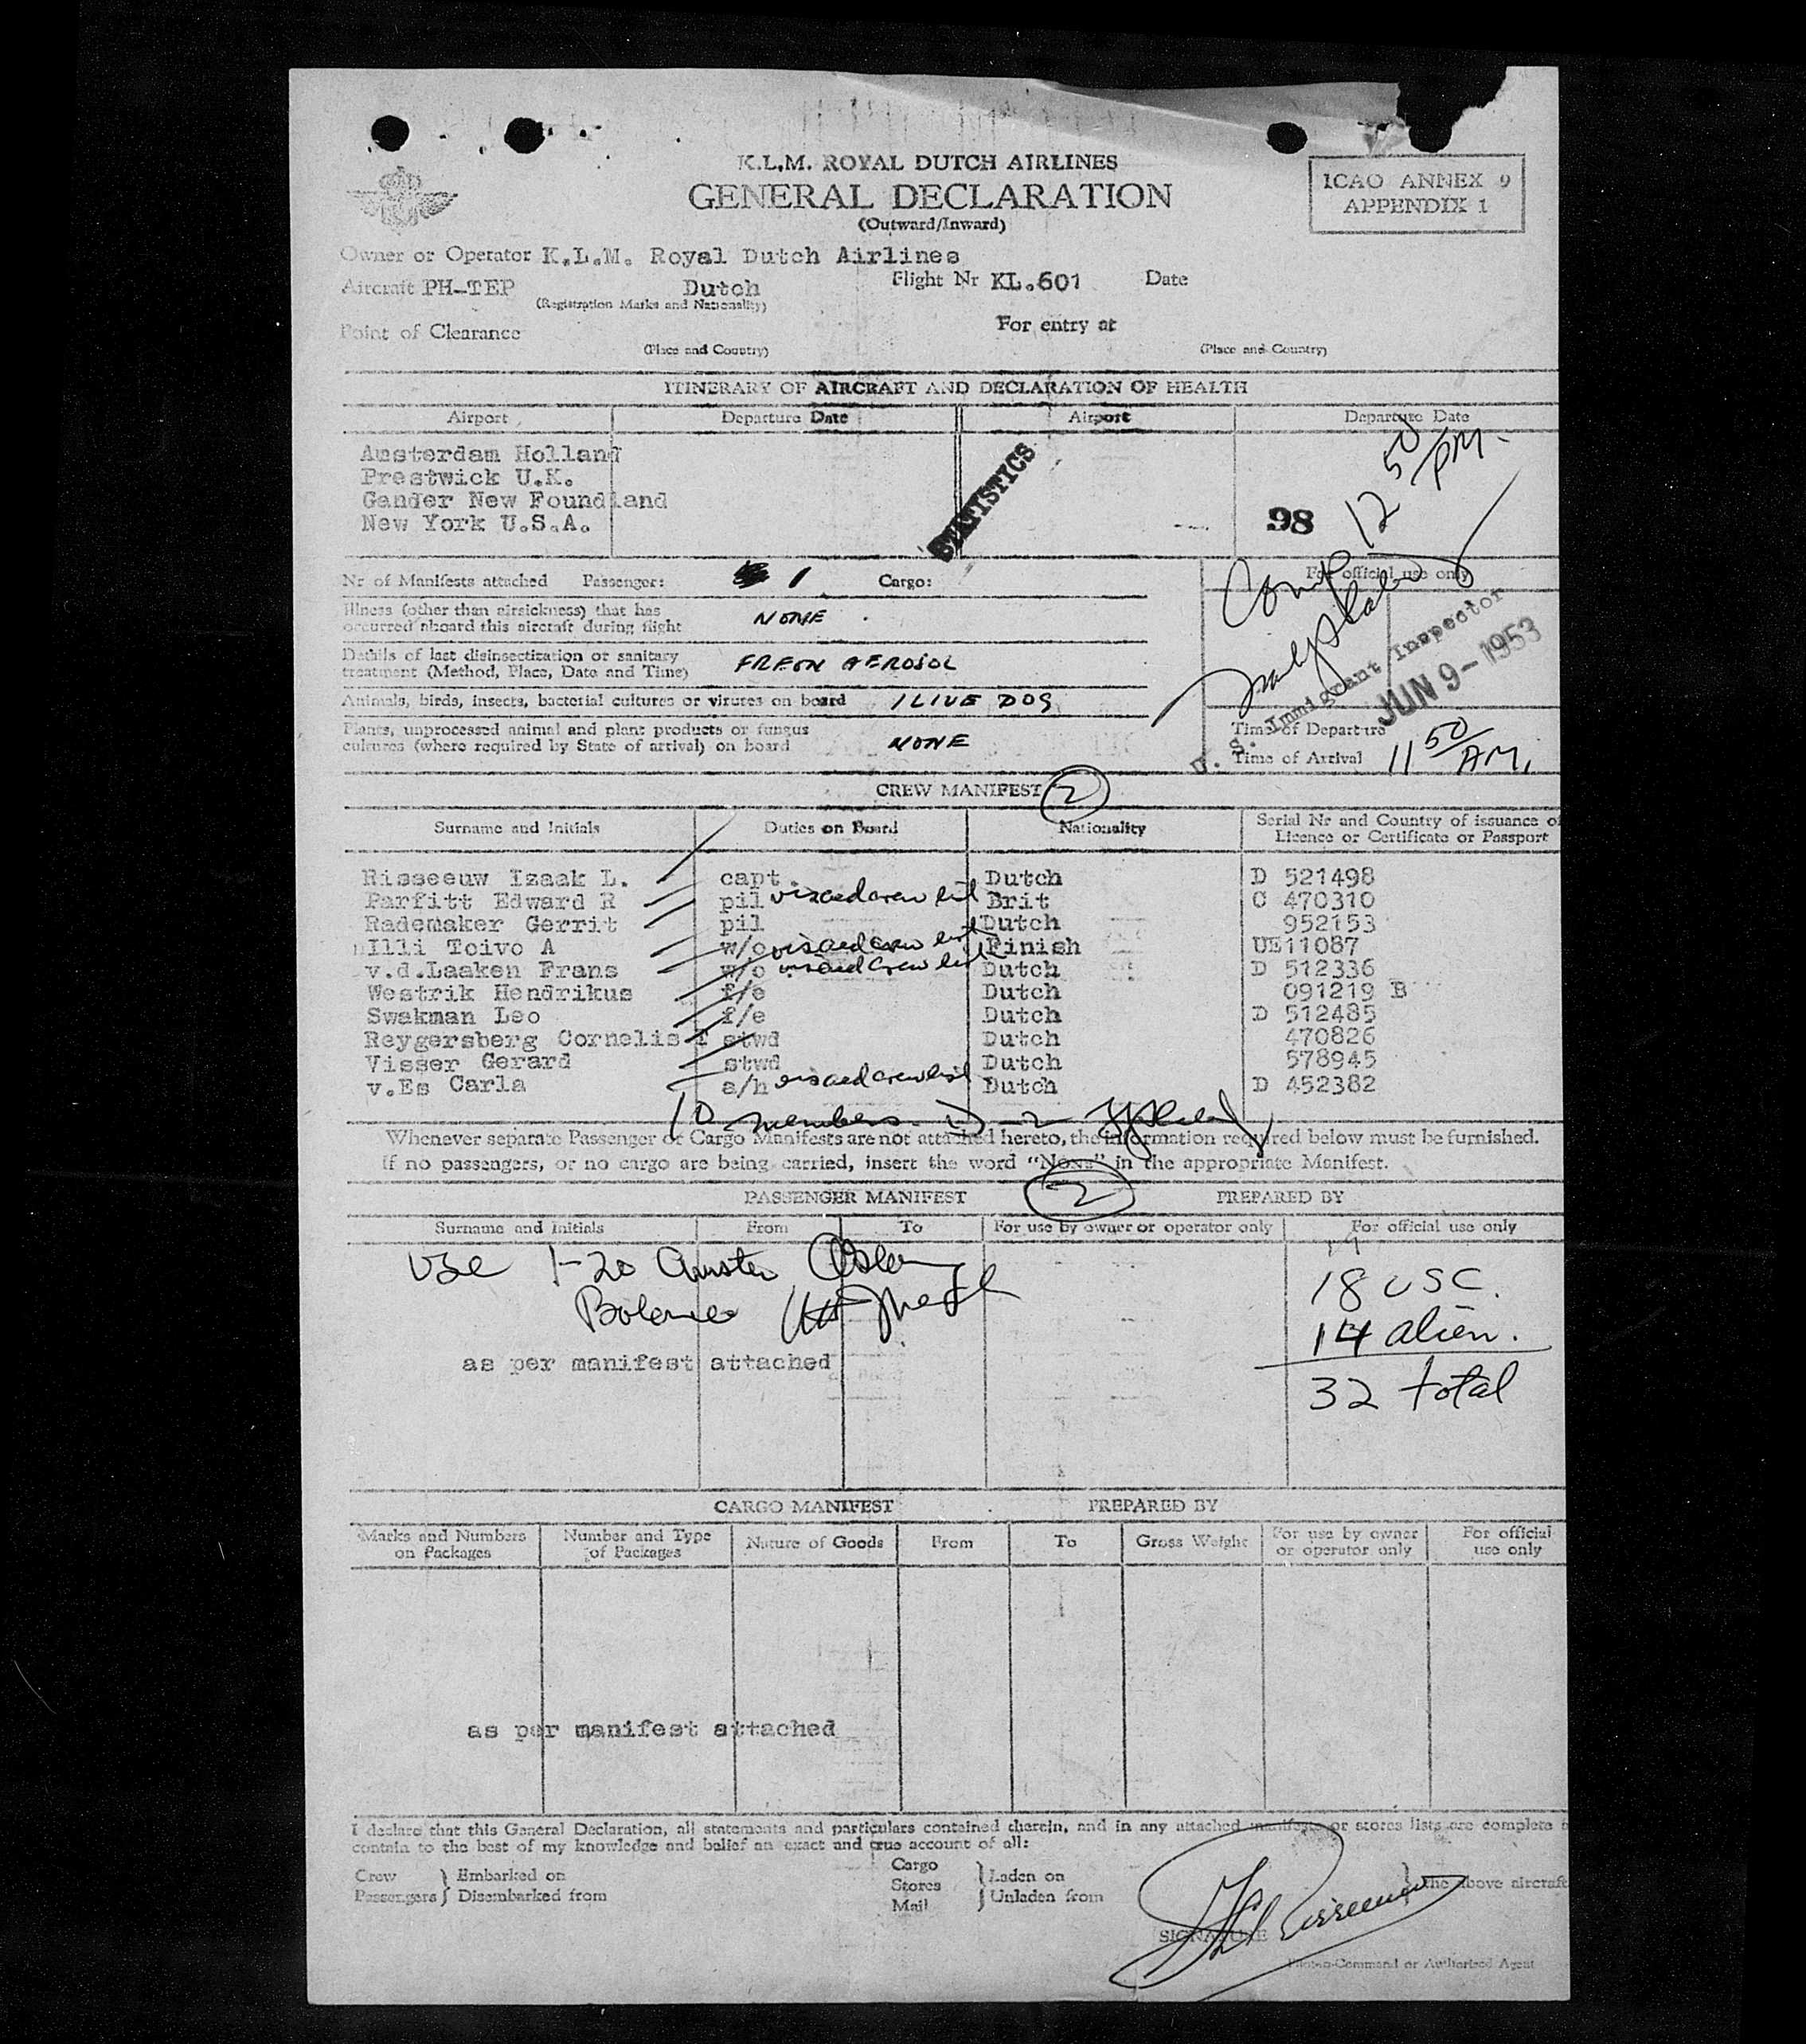 K.L.M. ROYAL DUTCH AIRLINES
GENERAL DECLARATION
(Outward/Inward)
ICAO ANNEX 9
APPENDIX 1
Owner or Operator K.L.M. Royal Dutch Airlines
Aircraft PH-TEP Dutch Flight Nr KL.601 Date
(Registration Marks and Nationality)
Point of Clearance For entry at
(Place and Country) (Place and Country)
ITINERARY OF AIRCRAFT AND DECLARATION OF HEALTH
Airport Departure Date Airport Departure Date
Amsterdam Holland
Prestwick U.K.
Gander New Foundland
New York U.S.A.
STATISTICS
98
Comp 12 50 PM.
Nr of Manifests attached Passenger: 1 Cargo:
For official use only
Illness (other than airsickness) that has
occurred aboard this aircraft during flight NONE
Details of last disinsectization or sanitary
treatment (Method, Place, Date and Time) FREON AEROSOL
Animals, birds, insects, bacterial cultures or viruses on board 1 LIVE DOG
Plants, unprocessed animal and plant products or fungus
cultures (where required by State of arrival) on board NONE
U. S. Immigrant Inspector
JUN 9-1953
Time of Departure
Time of Arrival 11 50 AM.
CREW MANIFEST 2
Surname and Initials Duties on Board Nationality Serial Nr and Country of issuance of
Licence or Certificate or Passport
Risseeuw Izaak L. capt. Dutch D 521498
Parfitt Edward R pil visaed crew list Brit C 470310
Rademaker Gerrit pil Dutch 952153
Illi Toivo A w/o visaed crew list Finish UE11087
v.d.Laaken Frans w/o visaed crew list Dutch D 512336
Westrik Hendrikus f/e Dutch 091219 B
Swakman Leo f/e Dutch D 512485
Reygersberg Cornelis stwd Dutch 470826
Visser Gerard stwd Dutch 578945
v.Es Carla s/h visaed crew list Dutch D 452382
10 members. D-2
Whenever separate Passenger or Cargo Manifests are not attached hereto, the information required below must be furnished.
If no passengers, or no cargo are being carried, insert the word “NONE” in the appropriate Manifest.
PASSENGER MANIFEST 2 PREPARED BY
Surname and Initials From To For use by owner or operator only For official use only
1-20
19
18 USC.
14 alien.
32 total
as per manifest attached
CARGO MANIFEST PREPARED BY
Marks and Numbers
on Packages Number and Type
of Packages Nature of Goods From To Gross Weight For use by owner
or operator only For official
use only
as per manifest attached
I declare that this General Declaration, all statements and particulars contained therein, and in any attached manifests or stores lists are complete
contain to the best of my knowledge and belief an exact and true account of all:
Crew } Embarked on Cargo } Laden on } the above aircraft
Passengers } Disembarked from Stores
Mail } Unladen from
SIGNATURE
Pilot-in-Command or Authorised Agent